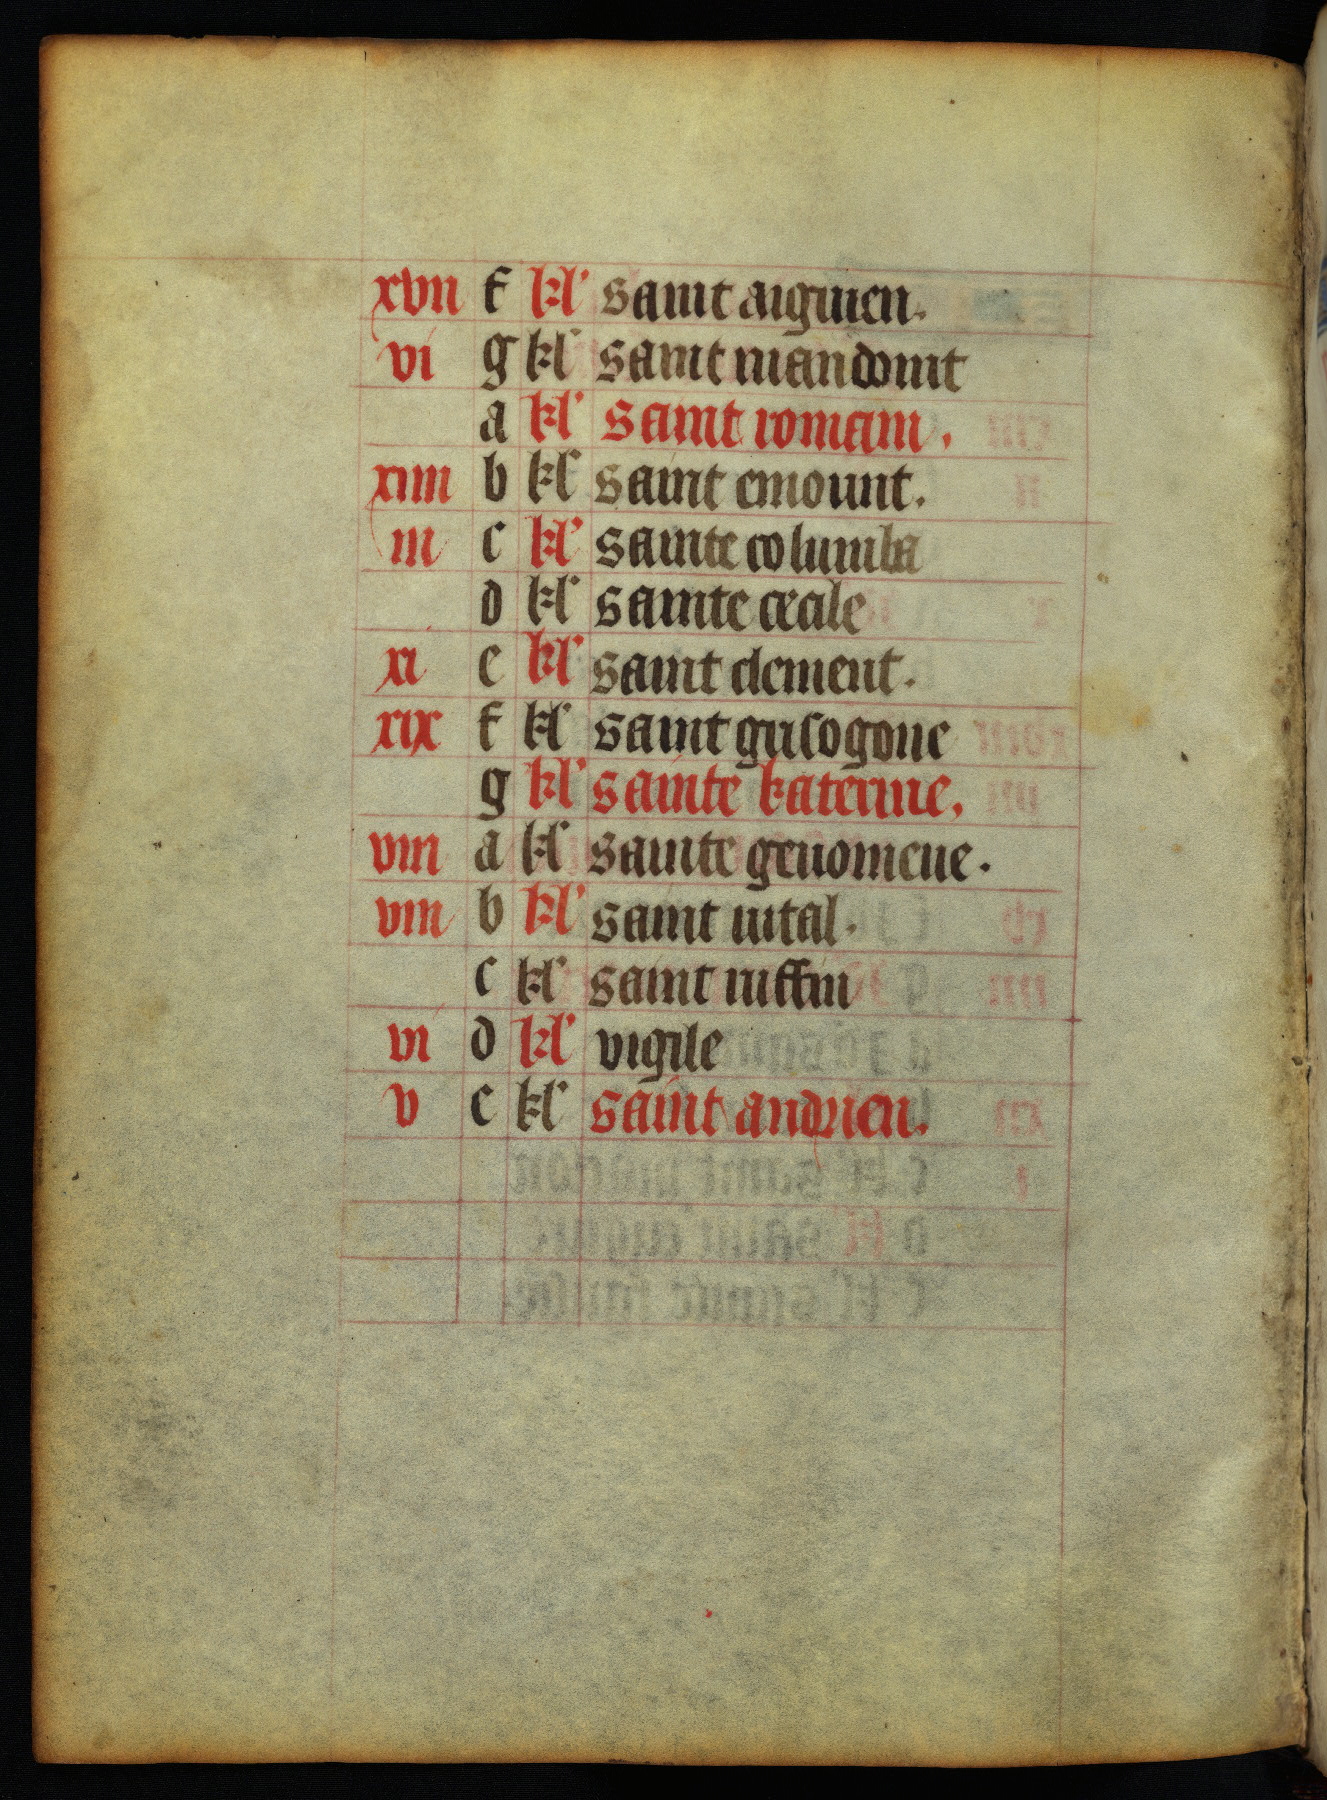 xvii f kl' saint aiguien.
vi g kl' saint mandouit
a kl' saint romain.
xiiii b kl' saint emount.
iii c kl' sainte columba
d kl' sainte cecile
xi e kl' saint clement.
xix f kl' saint grisogone
g kl' sainte katerine.
viii a kl' sainte genomeue.
viii b kl' saint uital.
c kl' saint ruffin
vi d kl' vigile
v e kl' saint andrieu.